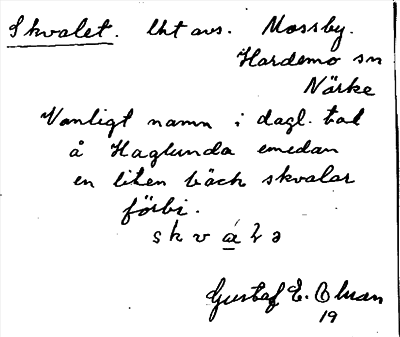 Skvalet. lht avs. Mossby.
Hardemo sn
Närke
Vanligt namn i dagl. tal
å Haglunda emedan
en liten bäck skvalar
förbi.
s k v
Gustaf E.
19